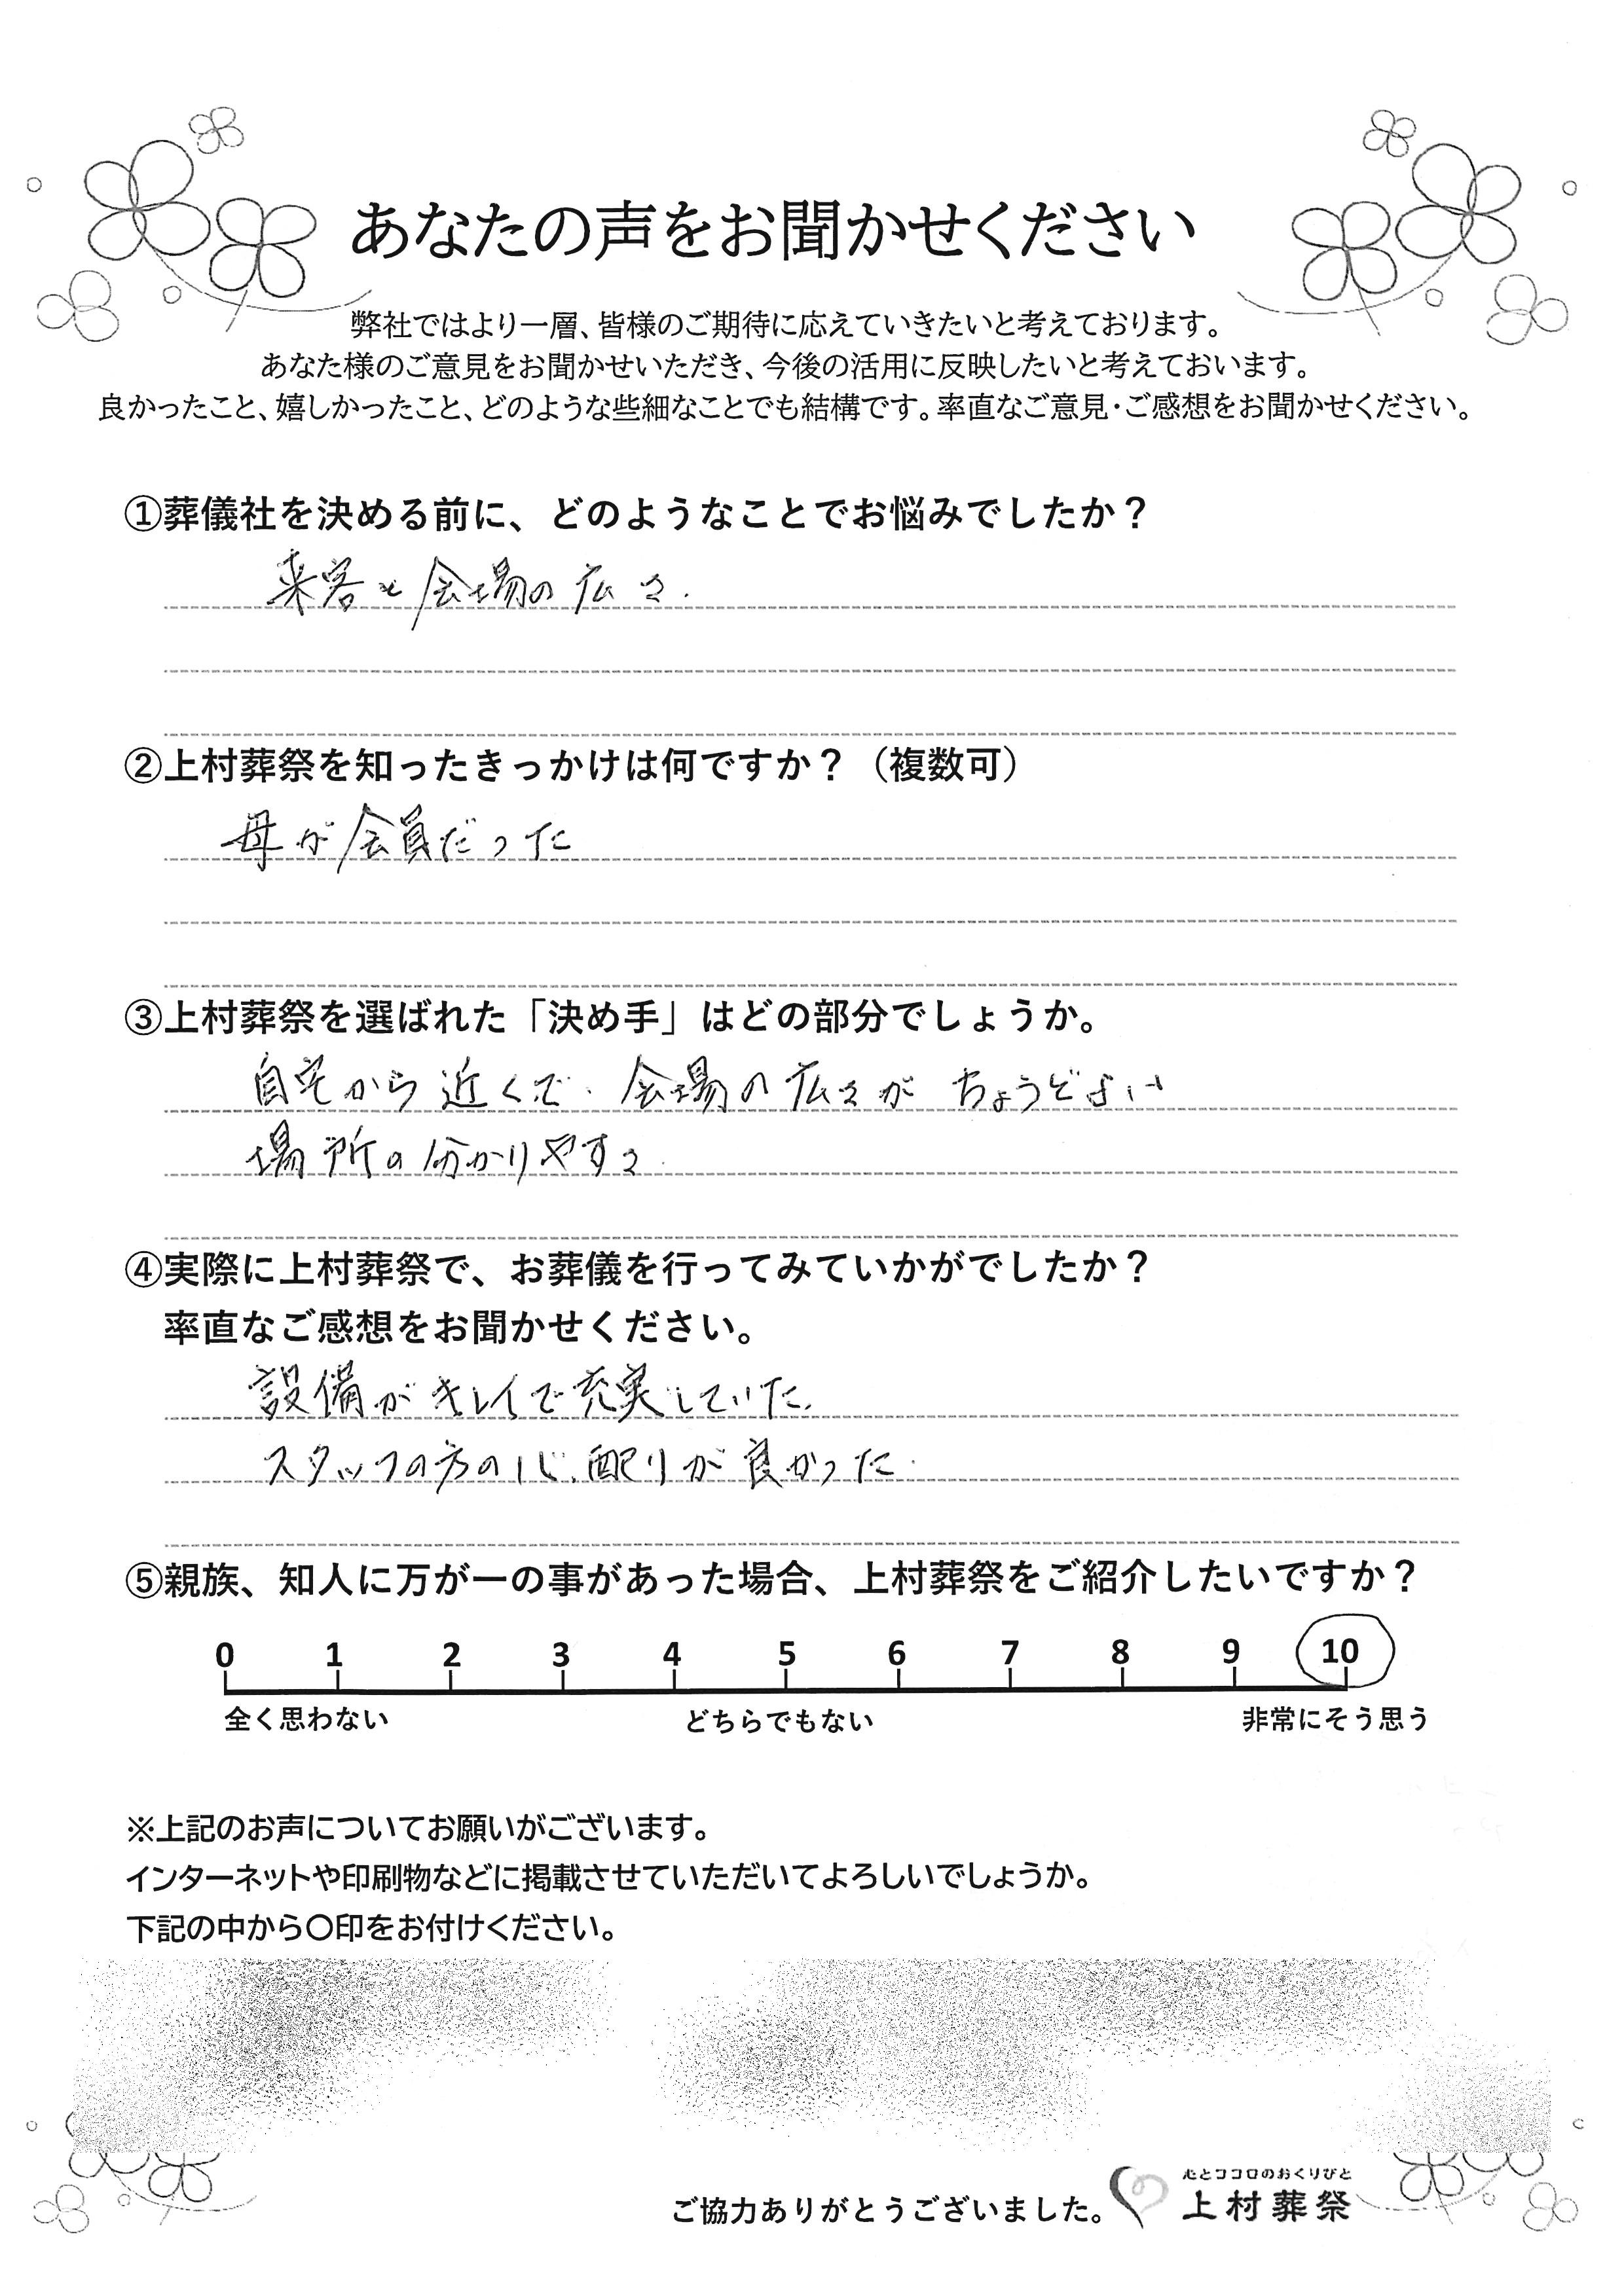 あなたの声をお聞かせください
弊社ではより一層、皆様のご期待に応えていきたいと考えております。
あなた様のご意見をお聞かせいただき、今後の活用に反映したいと考えておいます。
良かったこと、嬉しかったこと、どのような些細なことでも結構です。率直なご意見・ご感想をお聞かせください。
①葬儀社を決める前に、どのようなことでお悩みでしたか？
来客と会場の広さ.
②上村葬祭を知ったきっかけは何ですか？（複数可）
母が会員だった
③上村葬祭を選ばれた「決め手」はどの部分でしょうか。
自宅から近くで、会場の広さがちょうどよい
場所の分かりやすさ
④実際に上村葬祭で、お葬儀を行ってみていかがでしたか？
率直なご感想をお聞かせください。
設備がキレイで充実していた.
スタッフの方の心配りが良かった.
⑤親族、知人に万が一の事があった場合、上村葬祭をご紹介したいですか？
0 1 2 3 4 5 6 7 8 9 10
全く思わない どちらでもない 非常にそう思う
※上記のお声についてお願いがございます。
インターネットや印刷物などに掲載させていただいてよろしいでしょうか。
下記の中から〇印をお付けください。
心とココロのおくりびと
ご協力ありがとうございました。 上村葬祭